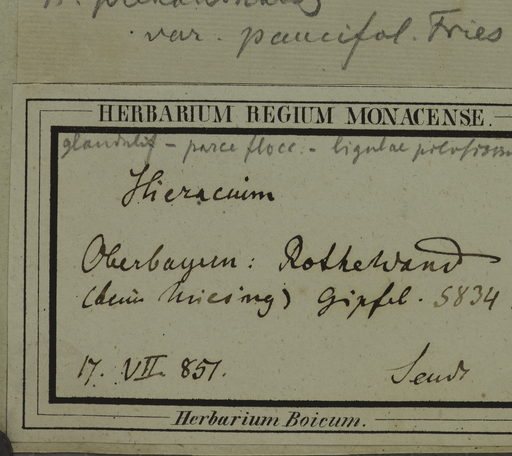 var. paucifol. Fries
HERBARIUM REGIUM MONACENSE.
glandulif - parce flocc. - ligulae
Hieracium
Oberbayern: Rothewand
(beim Miesing) Gipfel. 5834
17. VII. 851. Sendt
Herbarium Boicum.